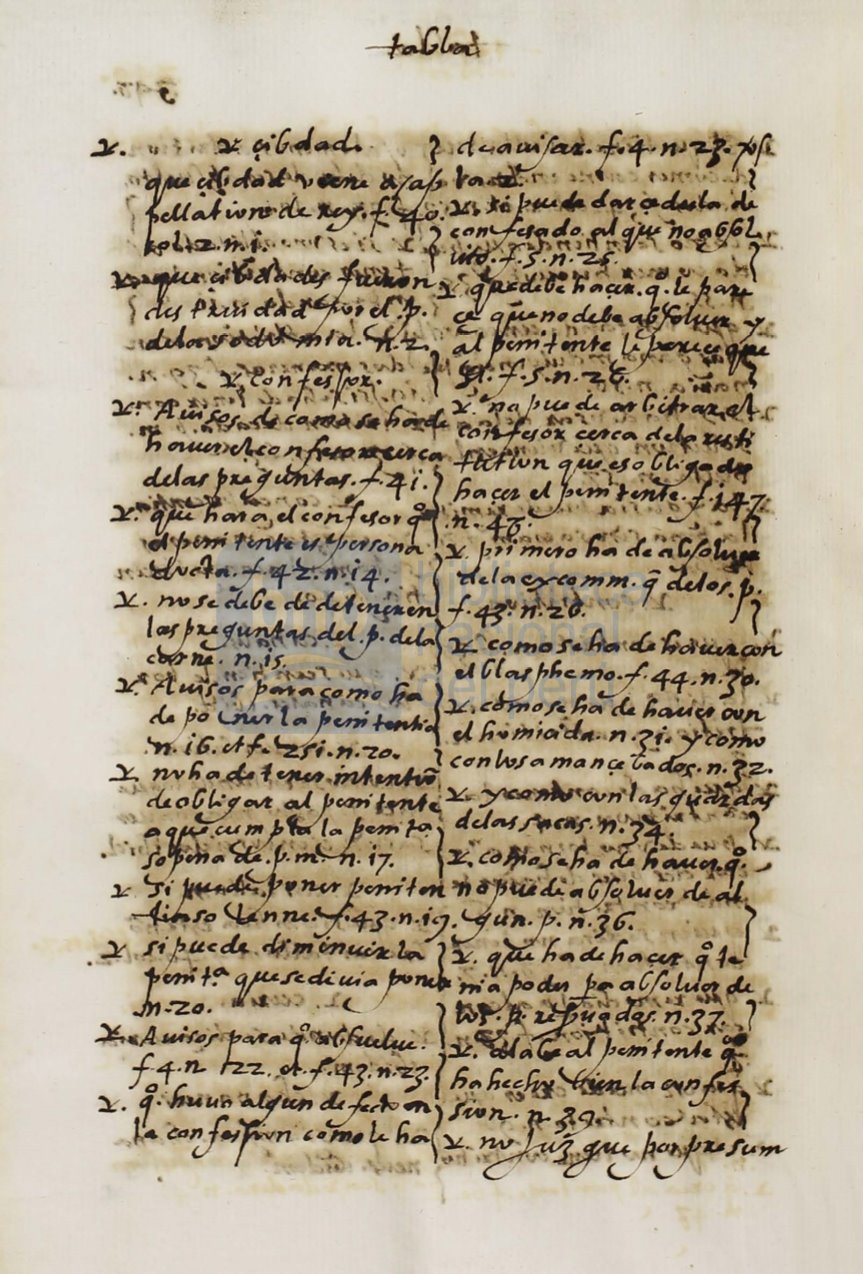 tabla
V. V çibdad.
que çibdad viene a
pellation de rey. f. 40.
col. 2. n. 1.
V. que cibdades fueron
destruidas por el .p.
de la sodomia. n. 2.
V. confessor.
V. Avisos de como se ha de
haver el confesor cerca
de las preguntas. f. 41.
V. que hara el confesor qº
el penitente es persona
docta. f. 42. n. 14.
V. no se debe de detener en
las preguntas del .p. de la
carne. n. 15.
V. Avisos para como ha
de poner la penitentia
n. 16. et f. 251. n. 20.
V. no ha de tener intentiō
de obligar al penitente
a que cumpla la penitª
so pena de .p. m. n. 17.
V si puede poner peniten
tia solenne. f. 43. n. 19.
V si puede diminuir la
penitª que se divia poner
n. 20.
V. Avisos para qº absuelve.
f. 4. n 22. et f. 43. n. 23.
V. qº huvo algun defecto en
la confession como le ha
de avisar. f. 4. n. 23.
V. si puede dar cedula de
confesado al que no absol
vio. f. 5. n. 25.
V que debe hacer .q. le pare
ce que no debe absolver y
al penitente le parece que
si. f. 5. n. 26.
V. no puede arbitrar el
confesor cerca de la resti
tution que es obligado
hacer el penitente. f. 147.
n. 43.
V. primero ha de absolver
de la excomm. q̄ de los .p.
f. 43. n. 26.
V. como se ha de haver con
el blasphemo. f. 44. n. 30.
V. como se ha de haver con
el homicida. n. 31. y como
con los amançebados. n. 32.
V. y como con las
de las n. 34.
V. como se ha de haver. qº.
no puede absolver de al
gun .p. n. 36.
V. que ha de hacer qº te
nia poder pa absolver de
los .p. n. 37.
V. alabe al penitente qº
ha hecho bien la confes
sion. n. 39.
V. no juzgue por presum